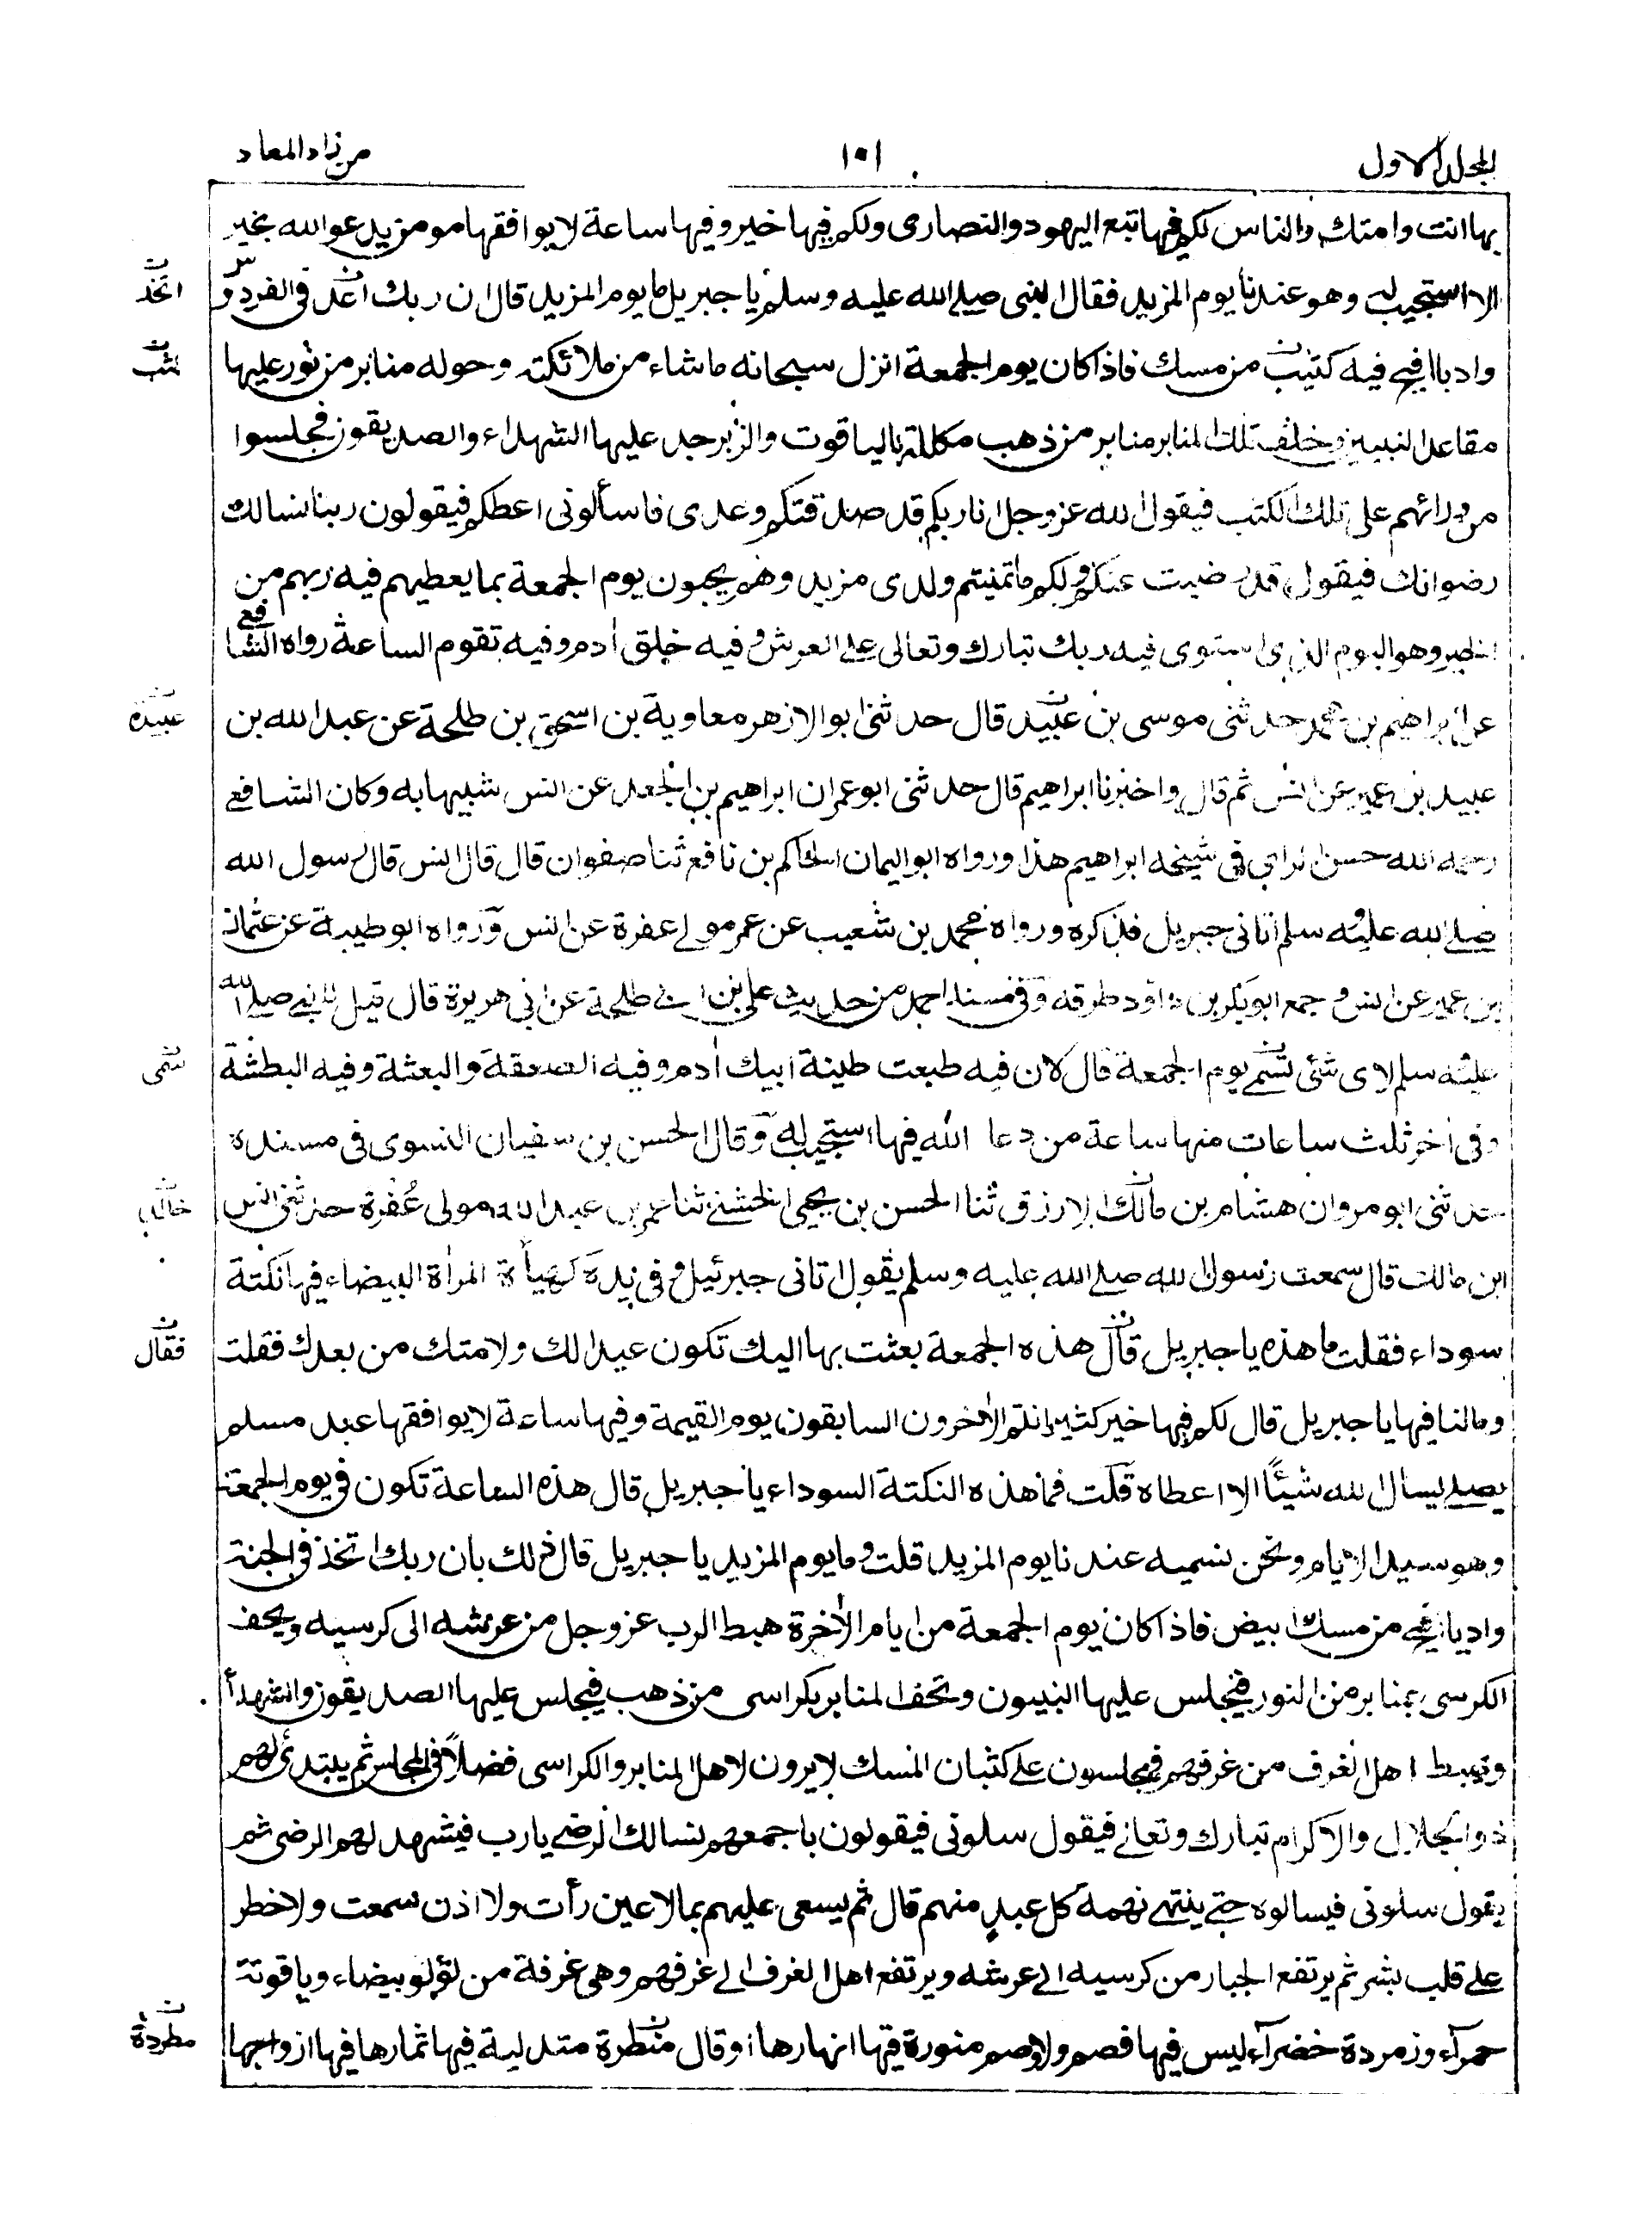 المجلد الاول
١٠١
من زاد المعاد
بها انت وامتك والناس لكم فيها تبع اليهود والنصارى ولكم فيها خير وفيها ساعة لا يوافقها مومن يدعو الله بخير
الا استجيب له وهو عندنا يوم المزيد فقال النبى صلى الله عليه وسلم يا جبريل ما يوم المزيد قال ان ربك اعد فى الفردوس
اتخذ
واديا افيح فيه كثيب من مسك فاذا كان يوم الجمعة انزل سبحانه ما شاء من ملائكته وحوله منابر من نور عليها
كثب
مقاعد النبيين وخلف تلك المنابر منابر من ذهب مكللة باليا قوت والزبرجد عليها الشهداء والصديقون فجلسوا
من ورائهم على تلك الكثب فيقول الله عز وجل انا ربكم قد صدقتكم وعدى فاسألونى اعطكم فيقولون ربنا نسالك
رضوانك فيقول قد رضيت عنكم ولكم ما تمنيتم ولدى مزيد وهم يحبون يوم الجمعة بما يعطيهم فيه ربهم من
الخير وهو اليوم الذى استوى فيه ربك تبارك وتعالى على العرش وفيه خلق ادم وفيه تقوم الساعة رواه الشافعى
عن ابراهيم بن محمد حدثنى موسى بن عبيد قال حدثنى ابو الازهر معاوية بن اسحق بن طلحة عن عبد الله بن
عبيدة
عبيد بن عمير عن انس ثم قال واخبرنا ابراهيم قال حدثنى ابو عمران ابراهيم بن الجعد عن انس شبيها به وكان الشافعى
رحمه الله حسن الراى فى شيخه ابراهيم هذا ورواه ابو اليمان الحاكم بن نافع ثنا صفوان قال قال انس قال رسول الله
صلى الله عليه وسلم اتانى جبريل فذكره ورواه محمد بن شعيب عن عمر مولى عفرة عن انس ورواه ابو طيبة عن عثمان
بن عمير عن انس وجمع ابو بكر بن داؤد طرقه وفى مسند احمد من حديث على بن ابى طلحة عن ابى هريرة قال قيل للنبى صلى الله
عليه وسلم لاى شئ تسمى يوم الجمعة قال لان فيه طبعت طينة ابيك ادم وفيه الصعقة والبعثة وفيه البطشة
سمى
وفى اخر ثلث ساعات منها ساعة من دعا الله فيها استجيب له وقال الحسن بن سفيان النسوى فى مسنده
حدثنى ابو مروان هشام بن مالك الازرق ثنا الحسن بن يحيى الخشنى ثنا عمر بن عبد الله مولى عُفرة حدثنى انس
خالد
ابن مالك قال سمعت رسول الله صلى الله عليه وسلم يقول اتانى جبرئيل وفى يده كهيأة المرأة البيضاء فيها نكتة
سوداء فقلت ما هذه يا جبريل قال هذه الجمعة بعثت بها اليك تكون عيدا لك ولامتك من بعدك فقلت
فقال
وما لنا فيها يا جبريل قال لكم فيها خير كثير انتم الاخرون السابقون يوم القيمة وفيها ساعة لا يوافقها عبد مسلم
يصلى يسال الله شيئًا الا اعطاه قلت فما هذه النكتة السوداء يا جبريل قال هذه الساعة تكون فى يوم الجمعة
وهو سيد الايام ونحن نسميه عندنا يوم المزيد قلت وما يوم المزيد يا جبريل قال ذلك بان ربك اتخذ فى الجنة
واديا افيح من مسك ابيض فاذا كان يوم الجمعة من ايام الاخرة هبط الرب عز وجل من عرشه الى كرسيه ويحف
الكرسى بمنابر من النور فيجلس عليها النبيون وتحف المنابر بكراسى من ذهب فيجلس عليها الصديقون والشهدأ
ويهبط اهل الغرف من غرفهم فيجلسون على كثبان المسك لا يرون لاهل المنابر والكراسى فضلاً فى المجلس ثم يبتدئ لهم
ذو الجلال والاكرام تبارك وتعالى فيقول سلونى فيقولون باجمعهم نسالك الرضى يارب فيشهد لهم الرضى ثم
يقول سلونى فيسالوه حتى ينتهى نهمة كل عبدٍ منهم قال ثم يسعى عليهم بما لا عين رأت ولا اذن سمعت ولا خطر
على قلب بشر ثم يرتفع الجبار من كرسيه الى عرشه ويرتفع اهل الغرف الى غرفهم وهى غرفة من لؤلؤ بيضاء وياقوتة
حمرآء وزمردة خضرآء ليس فيها فصم ولا وصم منورة فيها انهارها او قال منطرة متدلية فيها ثمارها فيها ازواجها
مطردة